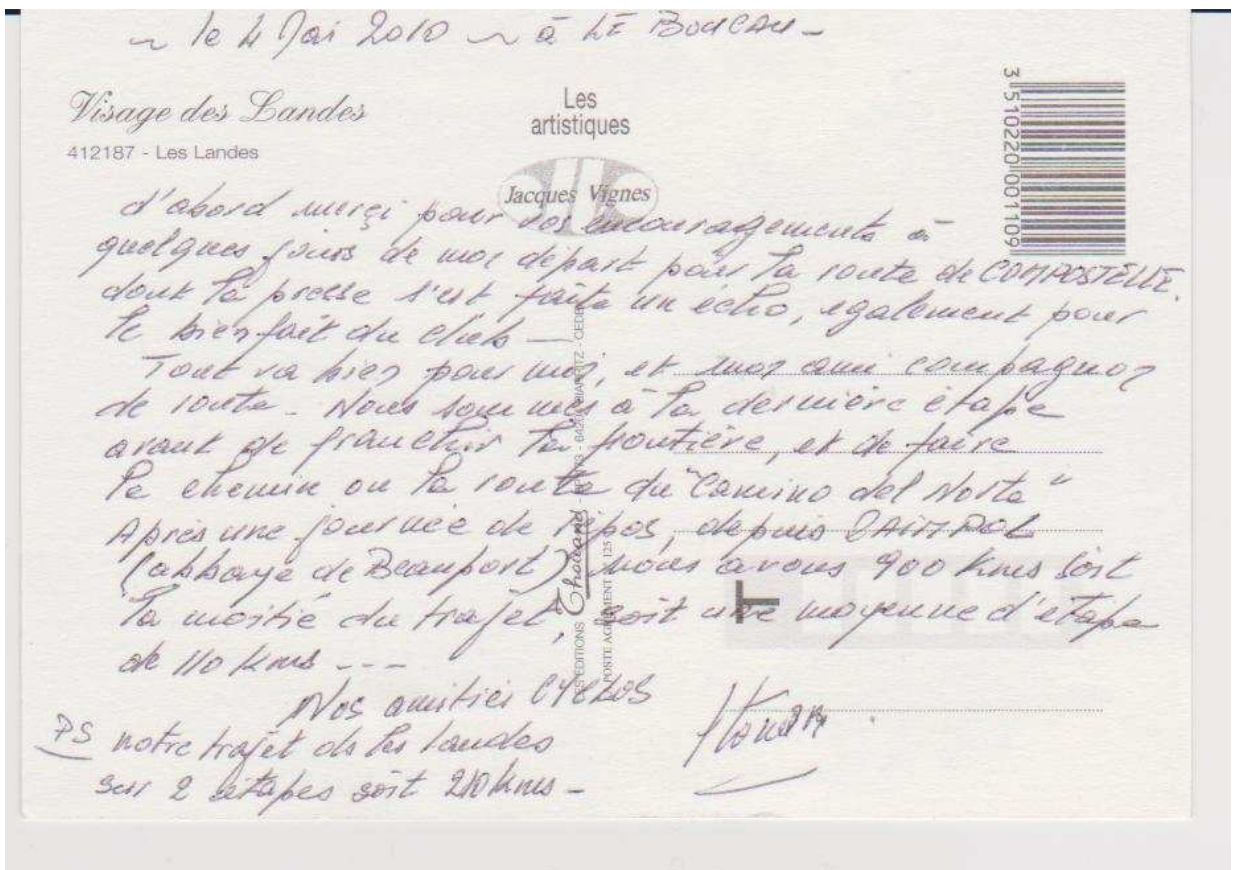 ~ le 4 Mai 2010 ~ à LE BOUCAU -
Visage des Landes
412187 - Les Landes
Les
artistiques
Jacques Vignes
3 510220 001109
d'abord merçi pour vos encouragements à
quelques jours de mon départ pour la route de COMPOSTELLE.
dont la presse s'est faite un écho, également pour
le bienfait du club -
Tout va bien pour moi, et mon ami compagnon
de route - Nous sommes à la dernière étape
avant de franchir la frontière, et de faire
le chemin ou la route du "Camino del Norte"
Après une journée de répos, depuis PAIMPOL
(abbaye de Beauport) nous avons 900 kms soit
la moitié du trajet, soit une moyenne d'étape
de 110 kms ---
Nos amitiés CYCLOS
PS notre trajet ds les landes
sur 2 étapes soit 210 kms -
T
LES EDITIONS Thouand - - 64202 BIARRITZ - CEDEX
POSTE AGREMENT N° 125